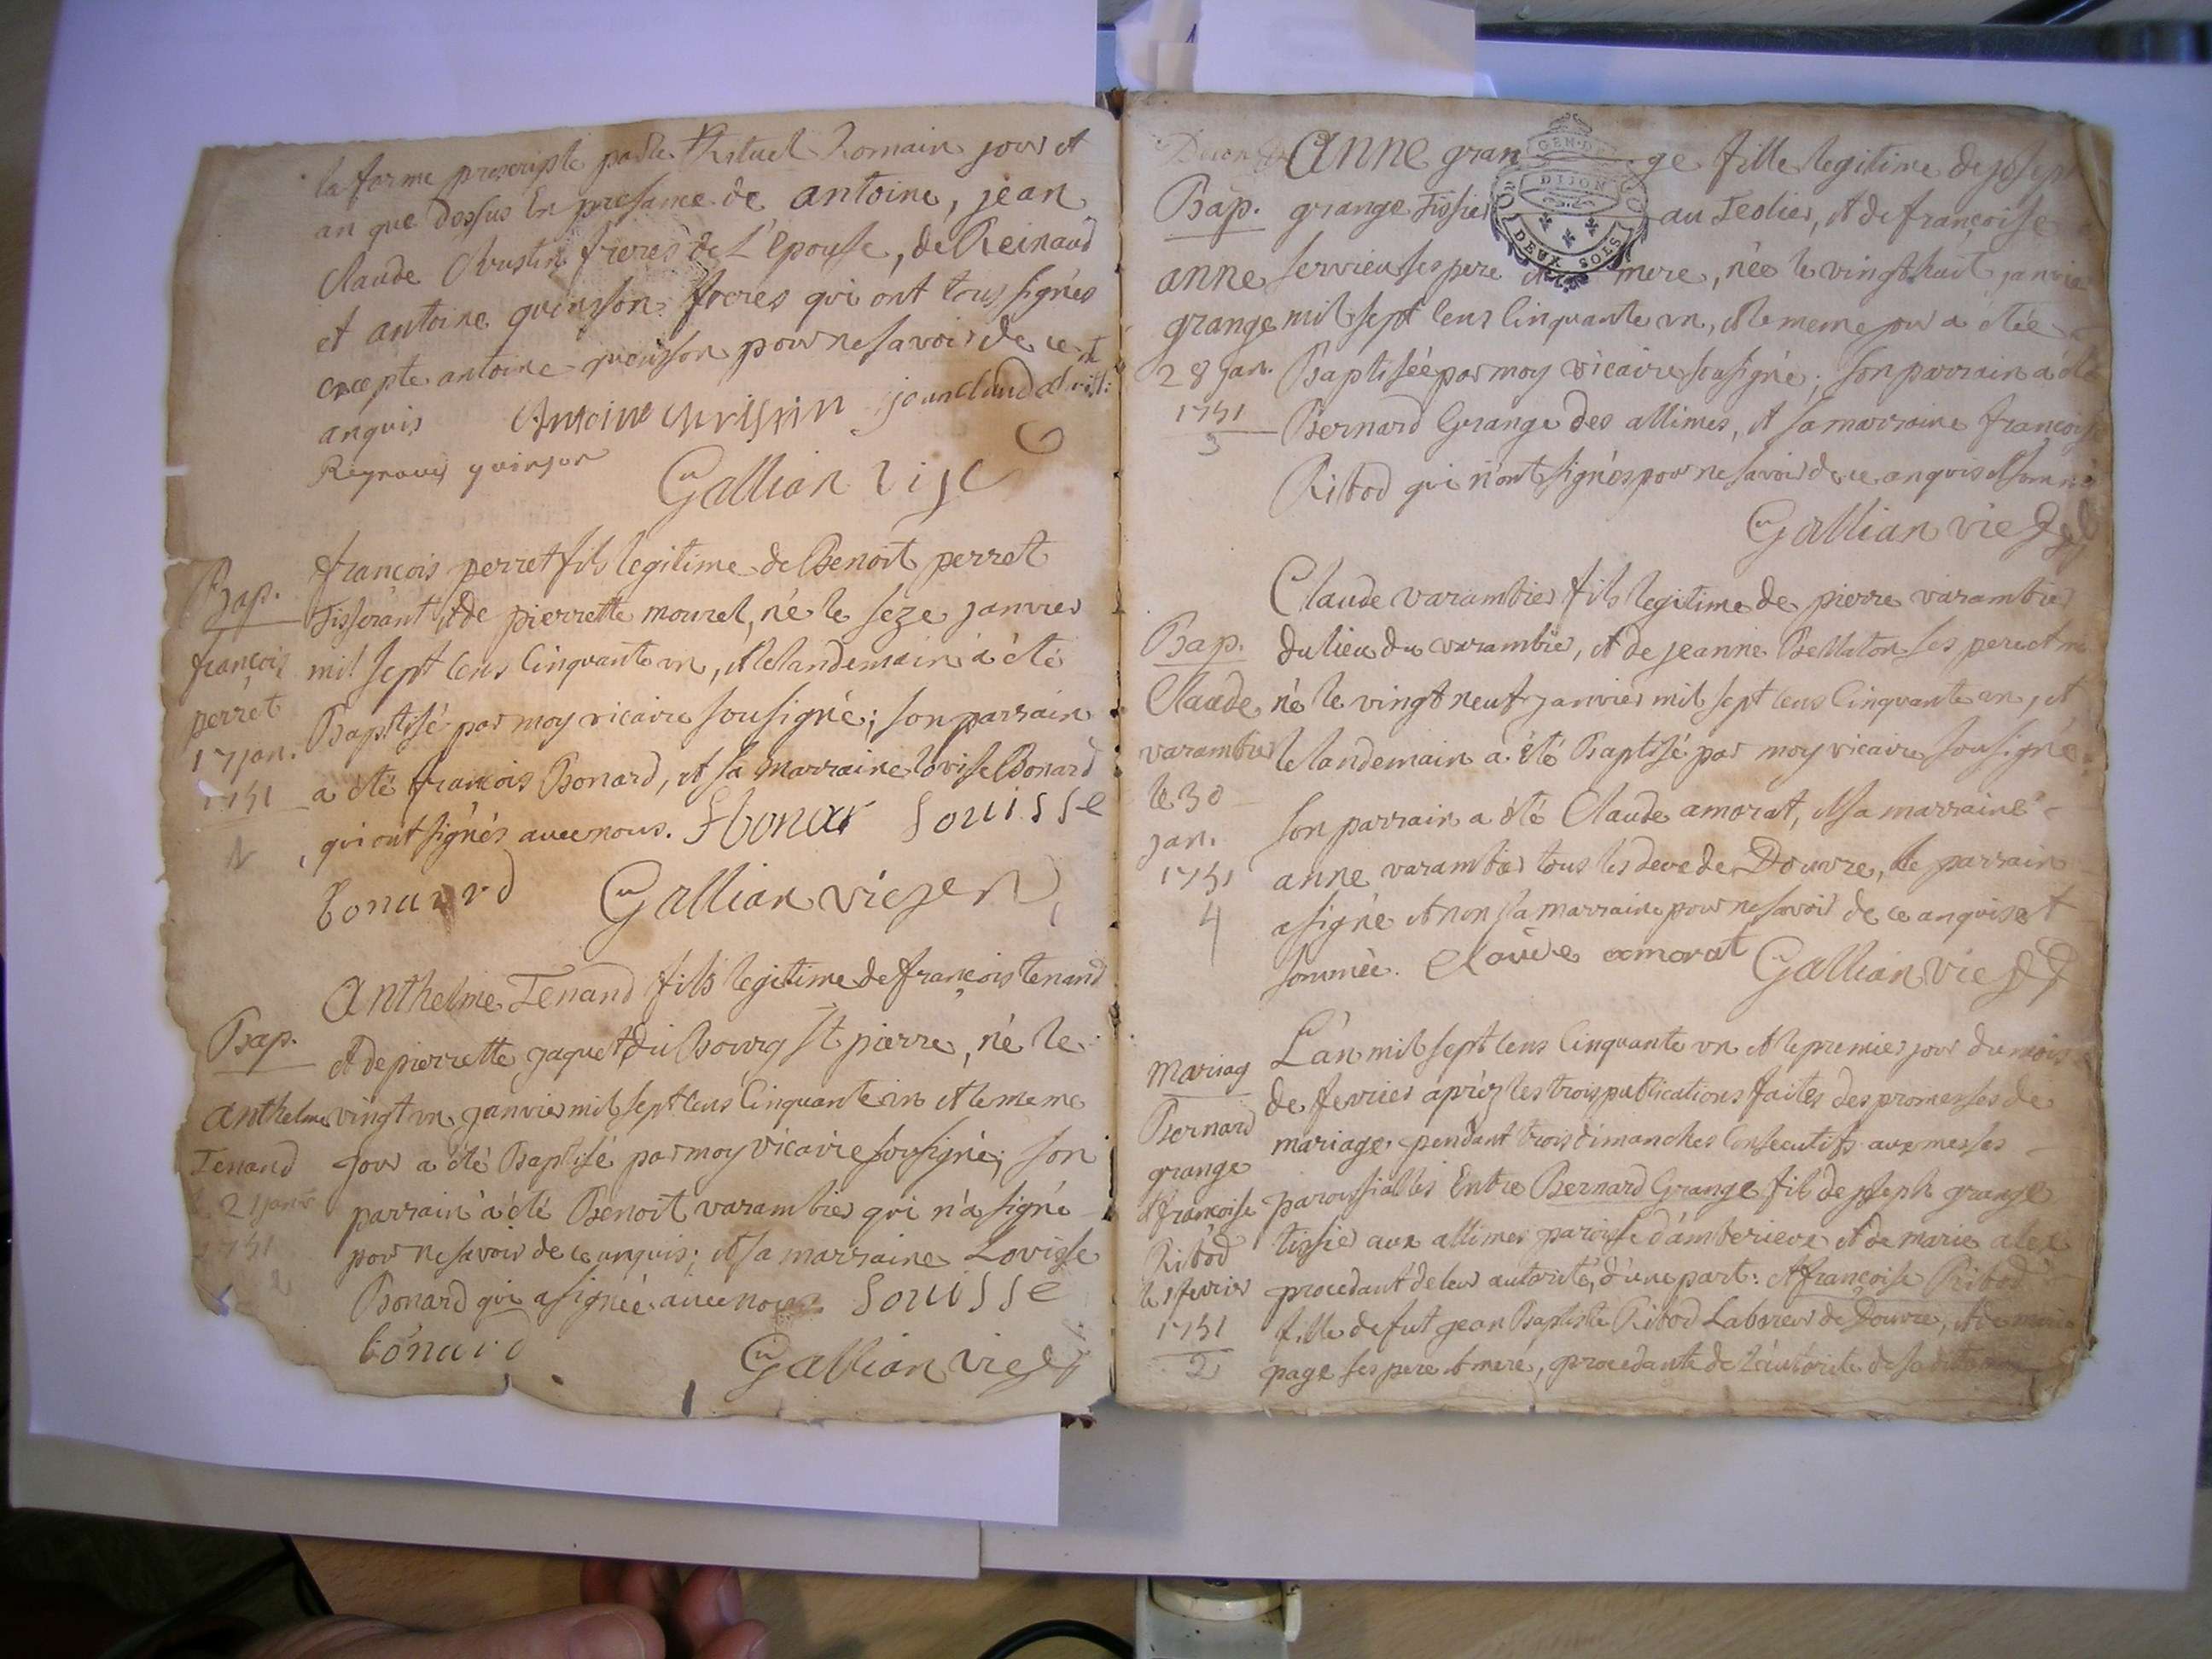 la forme prescripte par le Rituel Romain jour et
an que dessus En presance de antoine, jean
Claude freres de L'Epouse, de Reinaud
et antoine quinson freres qui ont tous signés
excepte antoine quinson pour ne savoir de ce
anquis Antoine jean Claud
Reynaud quinson
Gallian vic
françois perret fils legitime de Benoit perret
Bap.
Tisserant et de pierrette mourel, né le seze janvier
françois
mil sept cens Cinquante un, et le landemain a été
perret
Baptisé par moy vicaire sousigné; son parrain
17 jan.
a été françois Bonard, et sa marraine lovise Bonard
1751
qui ont signés avec nous. f bonar Louisse
bonard Gallian vic
Anthelme Tenand fils legitime de françois tenand
Bap.
et de pierrette jaquet du Bourg St pierre, né le
anthelme vingt un janvier mil sept cens Cinquante un et le meme
Tenand jour a été Baptisé par moy vicaire sousigné; son
21 janr
parrain a été Benoit varambier qui n'a signé
1751
pour ne savoir de ce anquis; et sa marraine Lovisse
2
Bonard qui a signée avec nous Louisse
bonard
Gallian vic
GEN. DE DIJON
DEUX SOLS
Anne gran ge fille legitime de joseph
Bap. grange Tissier au Teolier, et de françoise
anne servieu ses pere et mere, née le vingt huit janvier
grange mil sept cens Cinquante un, et le meme jour a étée
28 jan. Baptisée par moy vicaire sousigné; son parrain a été
1751 Bernard Grange des allimes, et sa marraine françoise
3
Ribod qui n'ont signés pour ne savoir de ce anquis et sommé
Gallian vic
Claude varambier fils legitime de pierre varambier
Bap. du lieu du varambier, et de jeanne Bellaton ses pere et me
Claude né le vingt neuf janvier mil sept cens Cinquante un, et
varambier le landemain a été Baptisé par moy vicaire sousigné
le 30
jan. son parrain a été Claude amorat, et sa marraine
1751 anne varambier tous les deux de Douvre, le parrain
4 a signé et non sa marraine pour ne savoir de ce anquise et
sommée. Claude amorat Gallian vic
L'an mil sept cens Cinquante un et le premier jour du mois
Mariag
de fevrier après les trois publications faites des promesses de
Bernard
mariage, pendant trois dimanches Consecutifs aux messes
grange
et françoise paroissialles Entre Bernard Grange fils de joseph grange
Ribod tissier aux allimes paroisse d'amberieux et de marie
le 1 fevrier procedant de leur autorité, d'une part: et françoise Ribod
1751 fille de fut jean Baptiste Ribod Laboureur de Douvre, et de marie
2 page ses pere et mere, procedante de l'autorité de sa dite mere